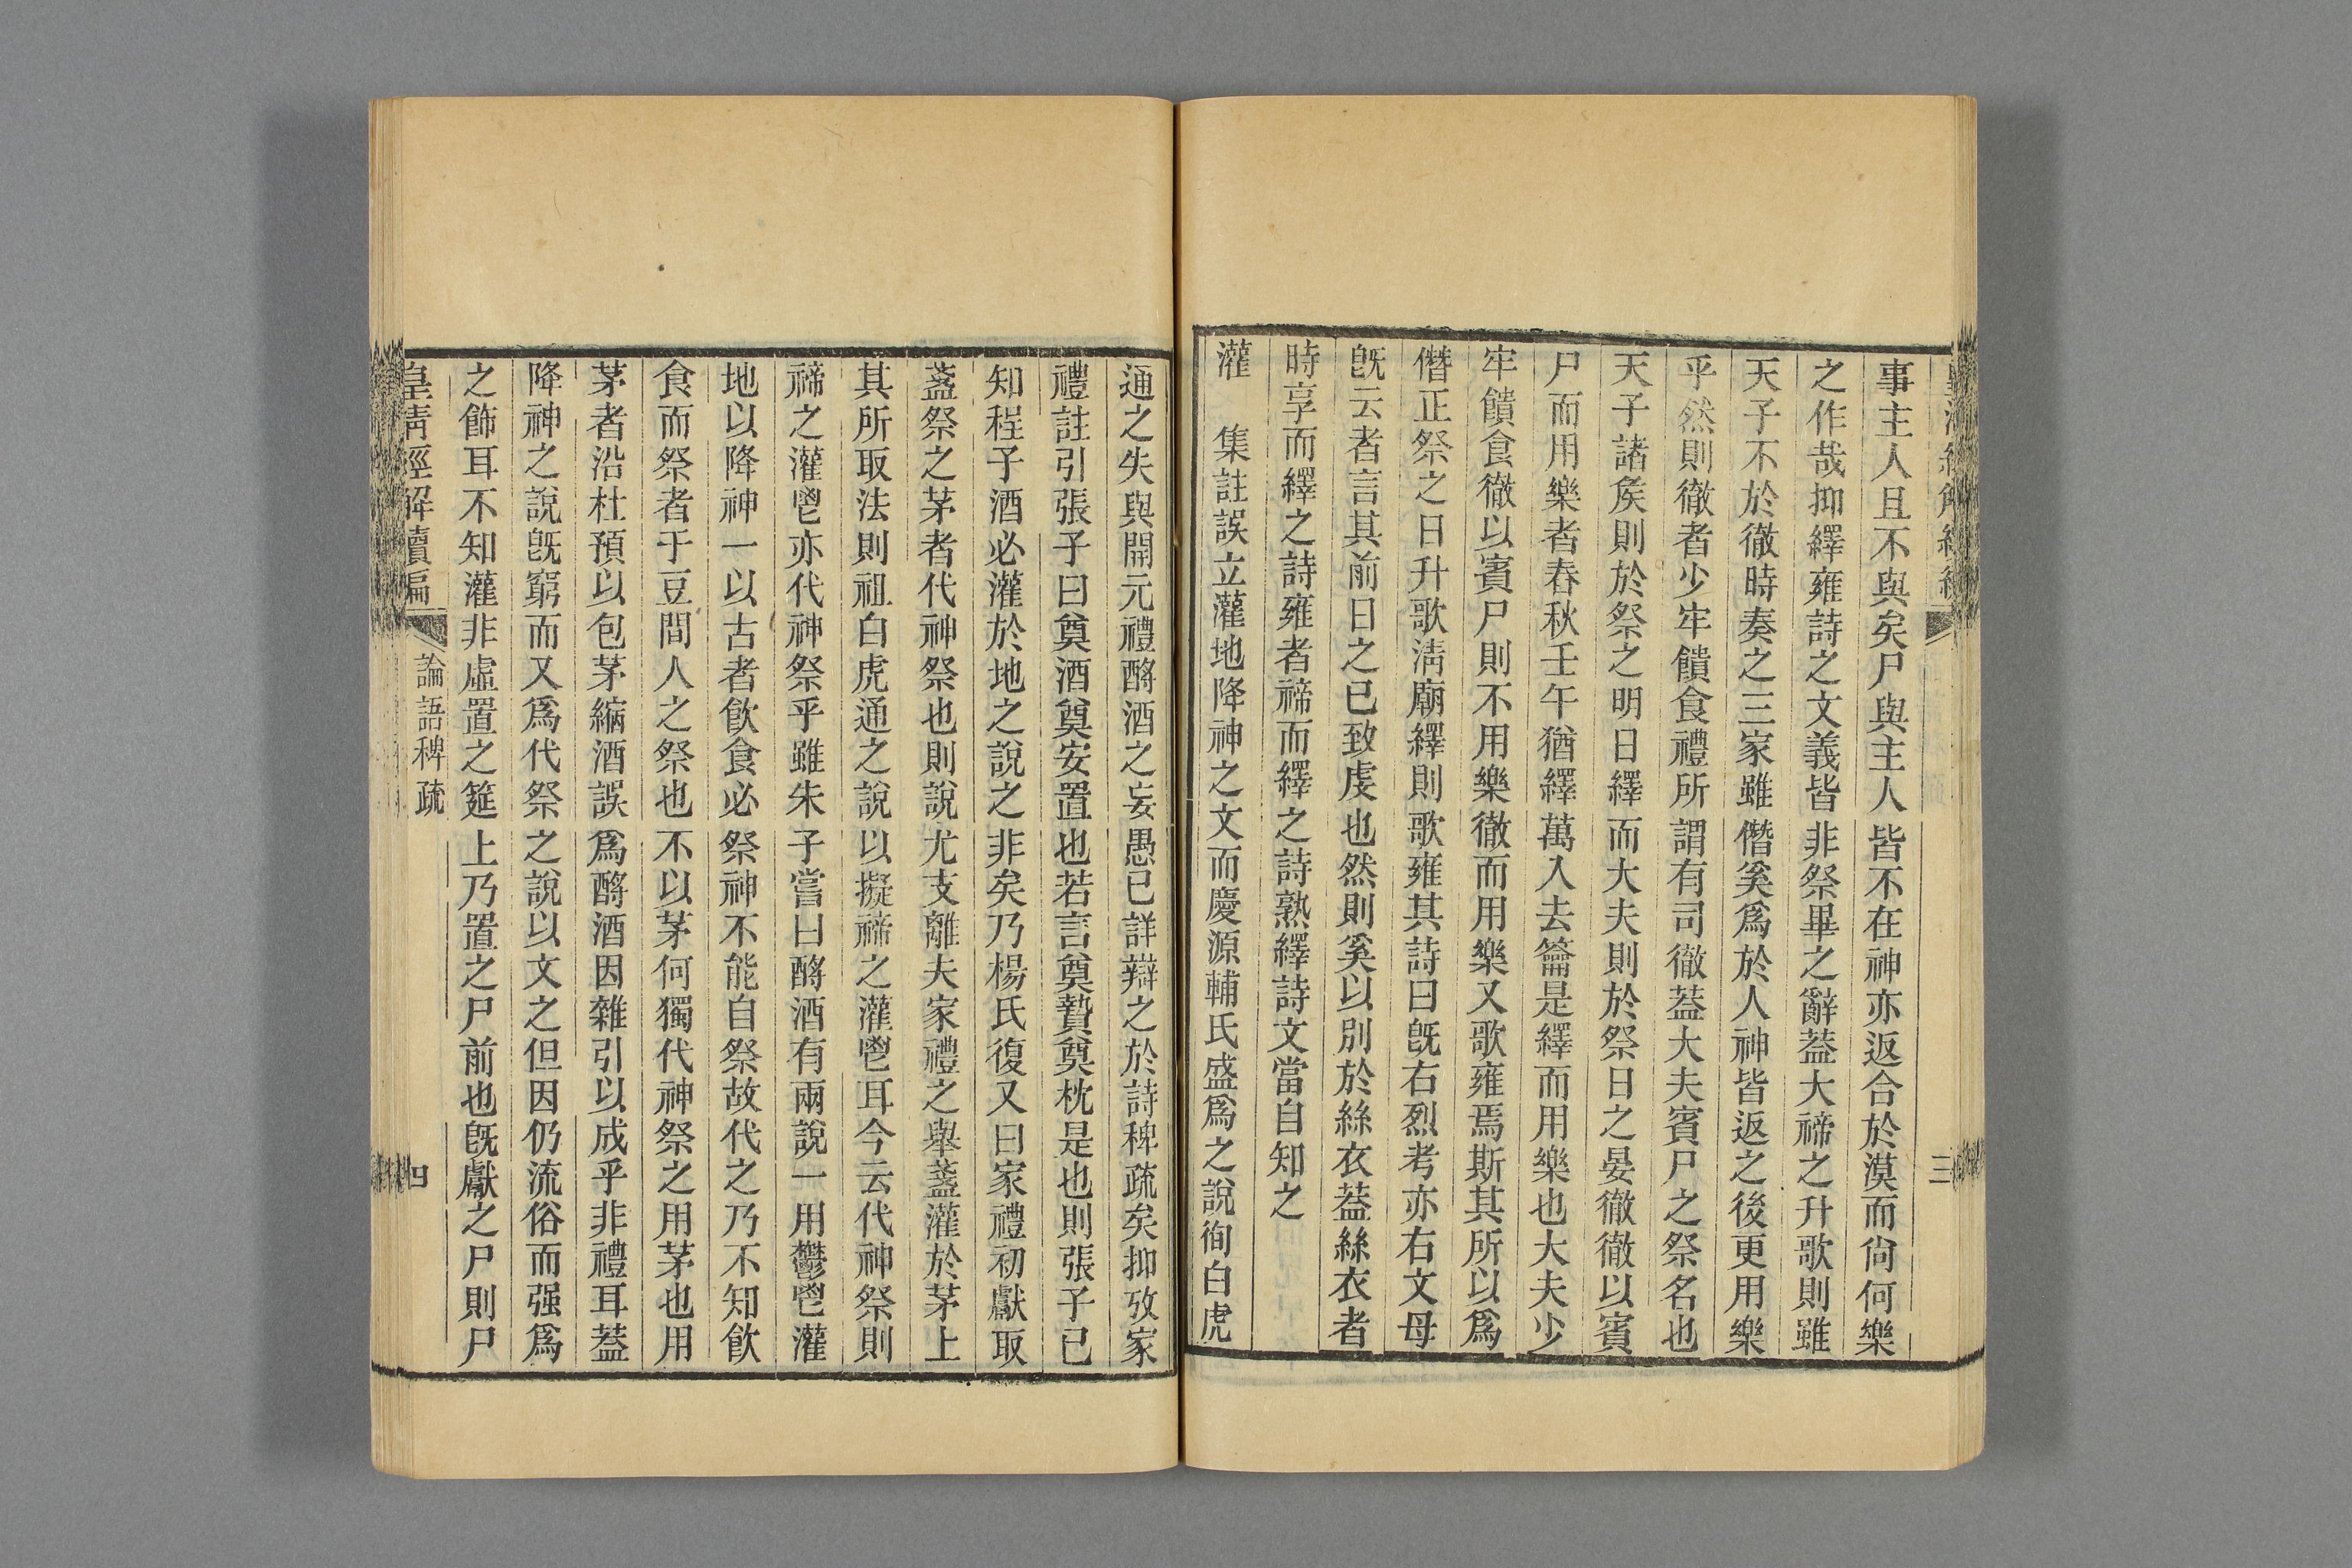 事主人且不與矣尸與主人皆不在神亦返合於漠而尙何樂
之作哉抑繹雍詩之文義皆非祭畢之辭葢大禘之升歌則雖
天子不於徹時奏之三家雖僭奚爲於人神皆返之後更用樂
乎然則徹者少牢饋食禮所謂有司徹葢大夫賓尸之祭名也
天子諸矦則於祭之明日繹而大夫則於祭日之晏徹徹以賓
尸而用樂者春秋壬午猶繹萬入去籥是繹而用樂也大夫少
牢饋食徹以賓尸則不用樂徹而用樂又歌雍焉斯其所以爲
僭正祭之日升歌淸廟繹則歌雍其詩曰旣右烈考亦右文母
旣云者言其前日之已致虔也然則奚以別於絲衣葢絲衣者
時享而繹之詩雍者禘而繹之詩熟繹詩文當自知之
灌　集註誤立灌地降神之文而慶源輔氏盛爲之說徇白虎
三
通之失與開元禮酹酒之妄愚已詳辯之於詩稗疏矣抑攷家
禮註引張子曰奠酒奠安置也若言奠贄奠枕是也則張子已
知程子酒必灌於地之說之非矣乃楊氏復又曰家禮初獻取
盞祭之茅者代神祭也則說尤支離夫家禮之舉盞灌於茅上
其所取法則祖白虎通之說以擬禘之灌鬯耳今云代神祭則
禘之灌鬯亦代神祭乎雖朱子嘗曰酹酒有兩說一用鬱鬯灌
地以降神一以古者飮食必祭神不能自祭故代之乃不知飮
食而祭者于豆間人之祭也不以茅何獨代神祭之用茅也用
茅者沿杜預以包茅縮酒誤爲酹酒因雜引以成乎非禮耳葢
降神之說旣窮而又爲代祭之說以文之但因仍流俗而强爲
之飾耳不知灌非虛置之筵上乃置之尸前也旣獻之尸則尸
皇淸經解續編
論語稗疏
四